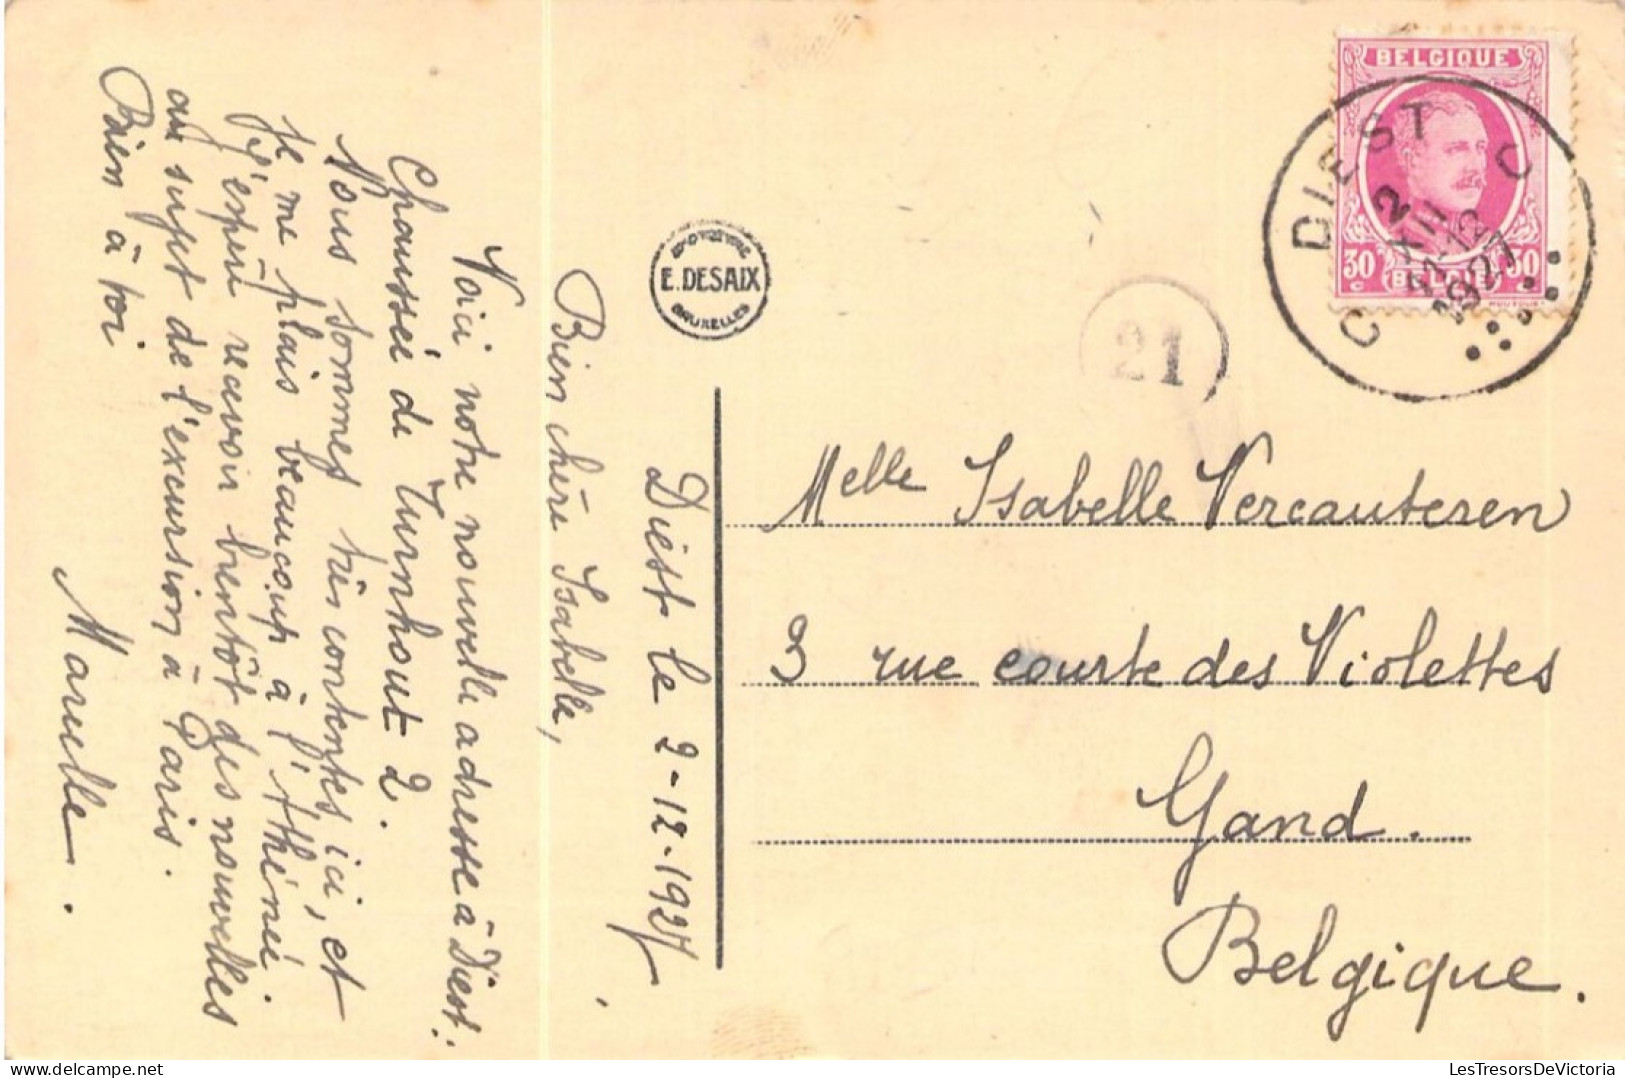 Diest le 2-12-1927,
Bien chère Isabelle,
Voici notre nouvelle adresse à Diest.
Chaussée de Turnhout 2.
Nous sommes très contentes ici, et
je me plais beaucoup à l'Athénée.
J'espère recevoir bientôt des nouvelles
au sujet de l'excursion à Paris.
Bien à toi
Marcelle.
E. DESAIX
BRUXELLES
21
BELGIQUE
30
BELGIE
30
C DIEST C
2
XII
11-12
1927
Melle Isabelle Vercauteren
3 rue courte des Violettes
Gand.
Belgique.
LesTresorsDeVictoria